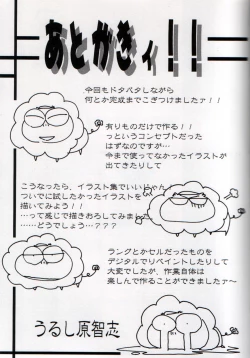 あとがきィ！！
今回もドタバタしながら
何とか完成までこぎつけましたァ！！
有りものだけで作る！！
っというコンセプトだった
はずなのですが…
今まで使ってなかったイラストが
出てきたりして
こうなったら、イラスト集でいいじゃん
ついでに試したかったイラストを
描いてみよう！！
…って感じで描きおろしてみました
……どうでしょう…？？？
ラングとかセルだったものを
デジタルでリペイントしたりして
大変でしたが、作業自体は
楽しんで作ることができましたァ〜
うるし原智志